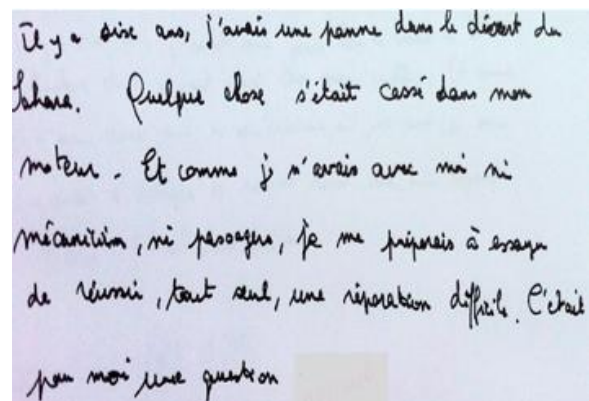 Il y a six ans, j'avais une panne dans le désert du
Sahara. Quelque chose s'était cassé dans mon
moteur. Et comme je n'avais avec moi ni
mécanicien, ni passagers, je me préparais à essayer
de réussir, tout seul, une réparation difficile. C'était
pour moi une question